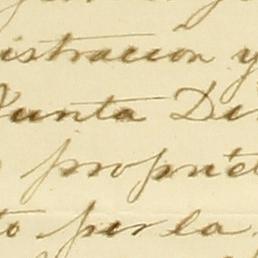 istracion y
Junta Di
propiet
to por la